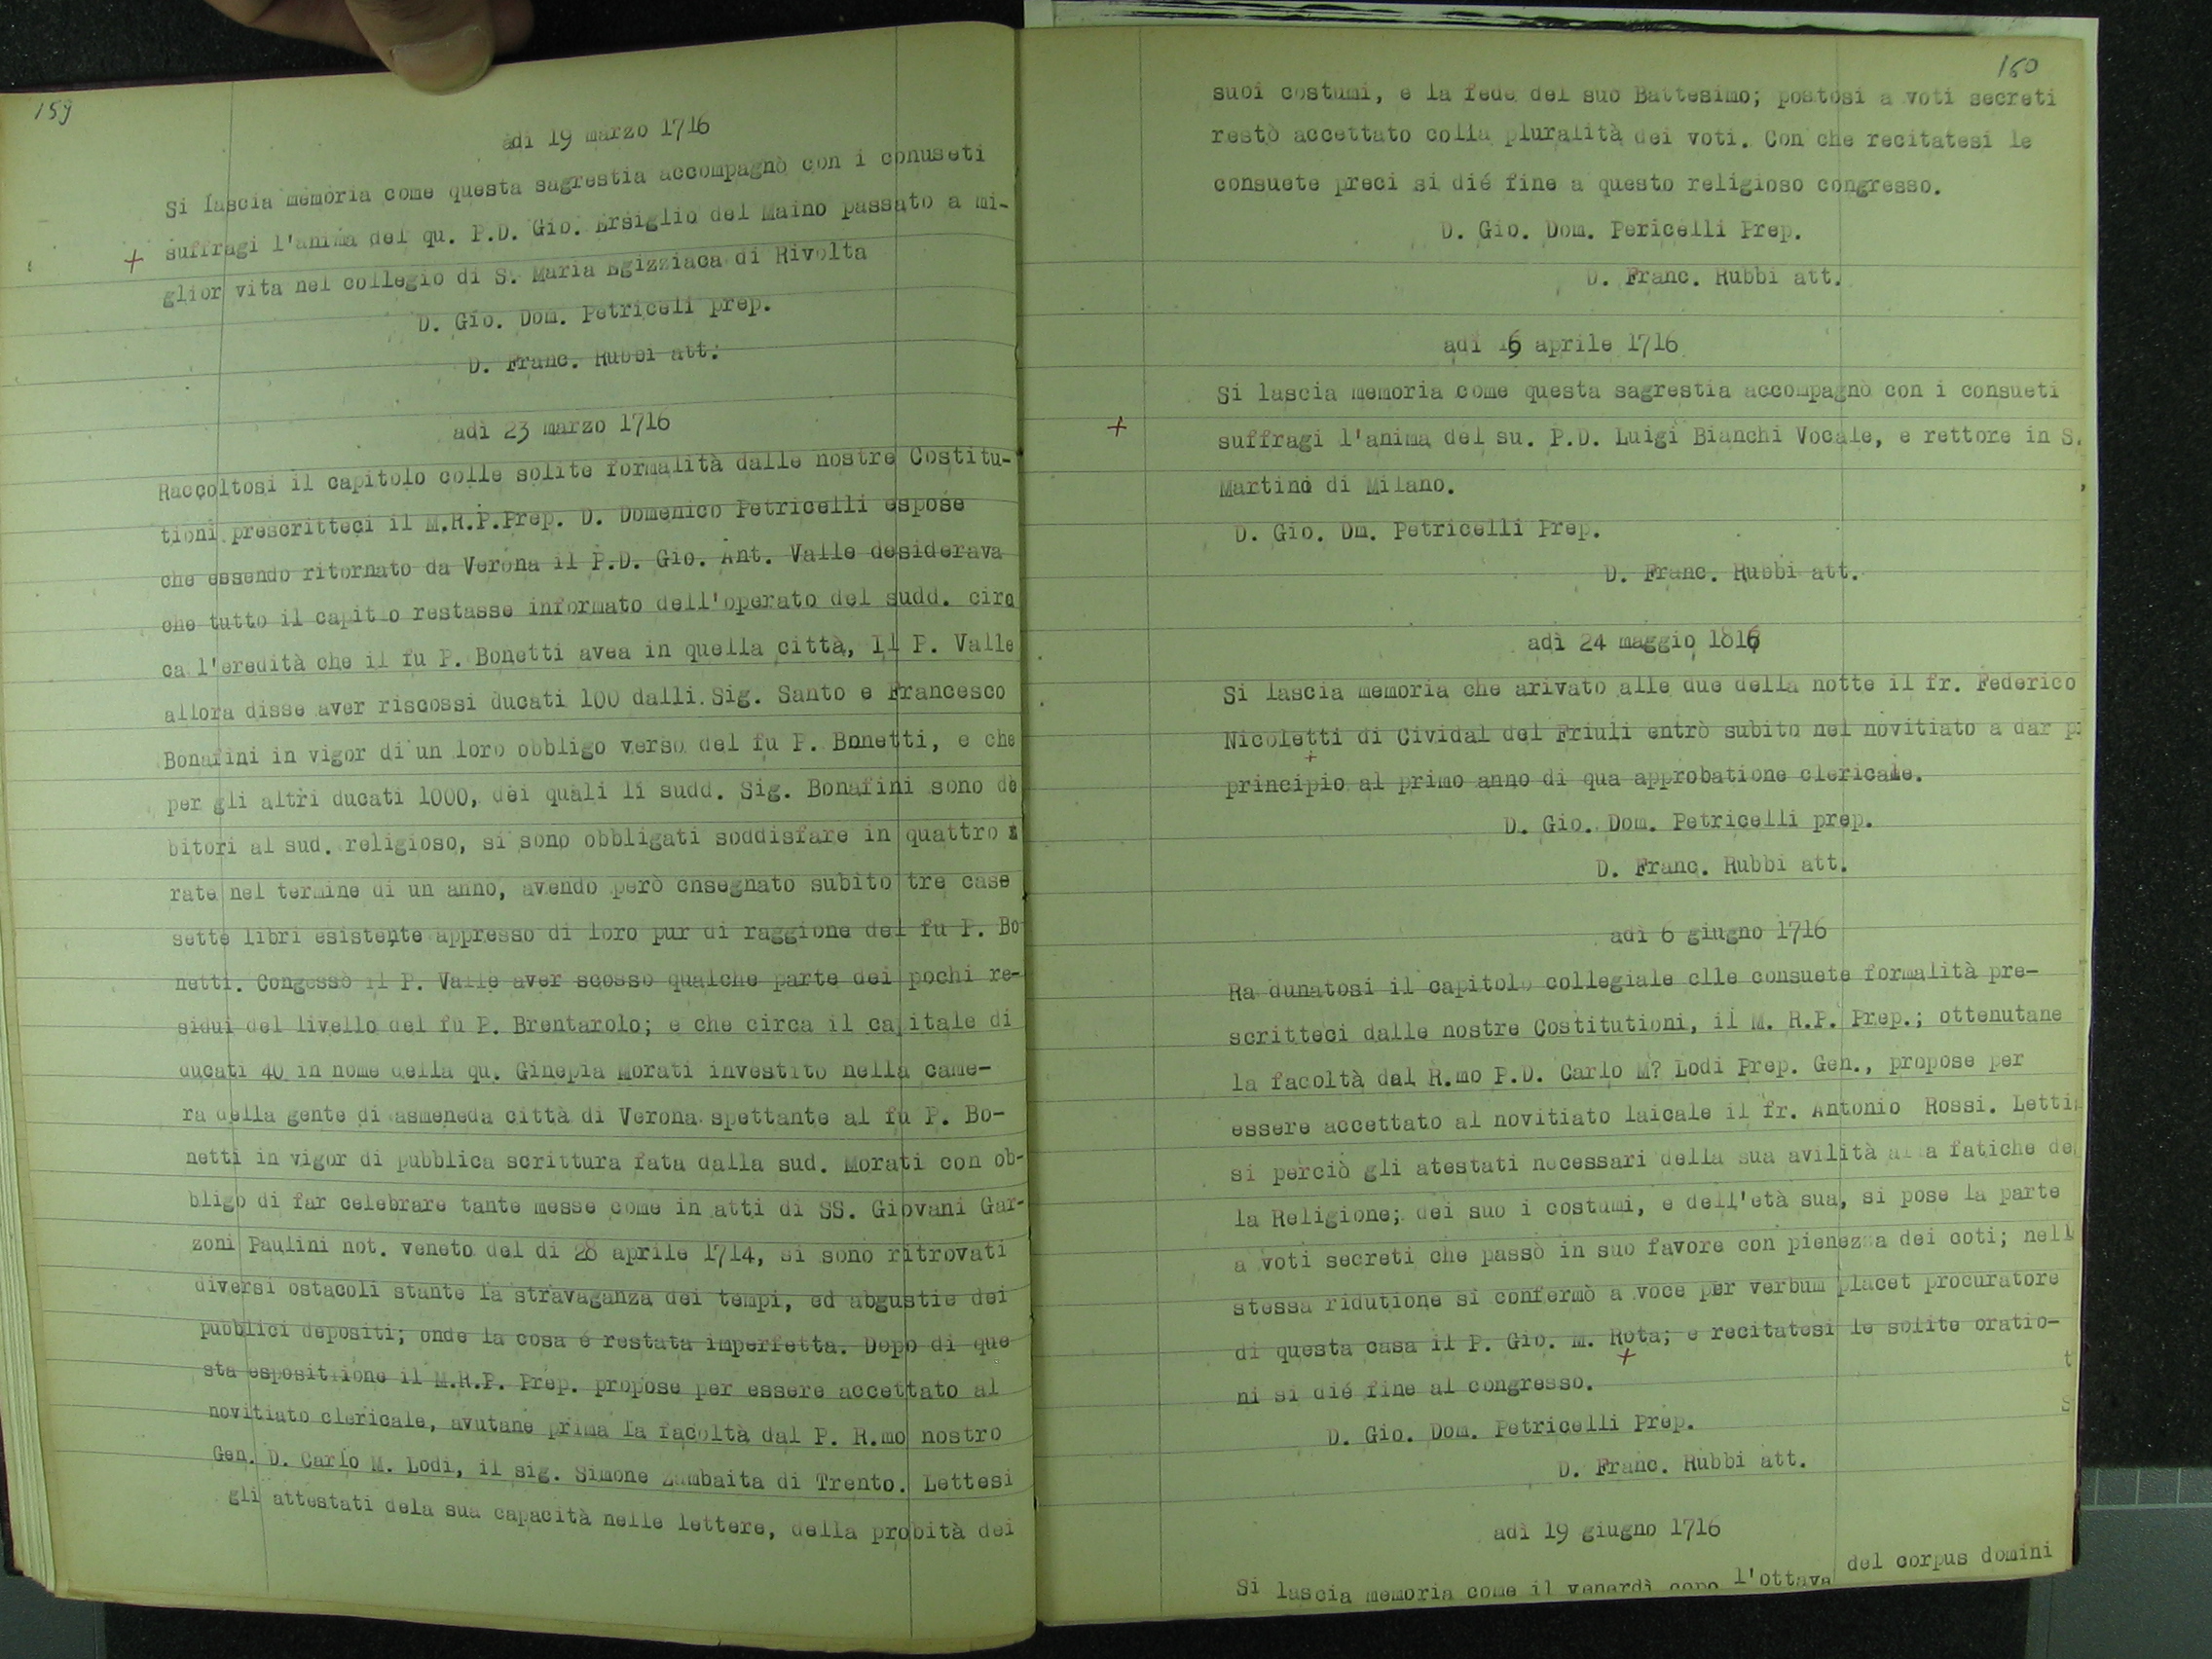 159
adì 19 marzo 1716
Si lascia memoria come questa sagrestia accompagnò con i conuseti
suffragi l'anima del qu. P.D. Gio. Ersiglio del Maino passato a mi-
glior vita nel collegio di S. Maria Egizziaca di Rivolta
D. Gio. Dom. Petriceli prep.
D. Franc. Rubbi att.
adì 23 marzo 1716
Raccoltosi il capitolo colle solite formalità dalle nostre Costitu-
tioni prescritteci il M.R.P.Prep. D. Domenico Petricelli espose
che essendo ritornato da Verona il P.D. Gio. Ant. Valle desiderava
che tutto il capit o restasse informato dell'operato del sudd. circ
ca l'eredità che il fu P. Bonetti avea in quella città, Il P. Valle
allora disse aver riscossi ducati 100 dalli Sig. Santo e Francesco
Bonafini in vigor di un loro obbligo verso del fu P. Bnnetti, e che
per gli altri ducati 1000, dei quali li sudd. Sig. Bonafini sono de
bitori al sud. religioso, si sono obbligati soddisfare in quattro
rate nel termine di un anno, avendo però cnsegnato subito tre case
sette libri esistente appresso di loro pur di raggione del fu P. Bo
netti. Congessò il P. Valle aver scosso qualche parte dei pochi re-
sidui del livello del fu P. Brentarolo; e che circa il capitale di
ducati 40 in nome della qu. Ginepia Morati investito nella came-
ra della gente di asmeneda città di Verona spettante al fu P. Bo-
netti in vigor di pubblica scrittura fata dalla sud. Morati con ob-
bligo di far celebrare tante messe come in atti di SS. Giovani Gar-
zoni Paulini not. veneto del di 28 aprile 1714, si sono ritrovati
diversi ostacoli stante la stravaganza dei tempi, ed abgustie dei
pubblici depositi; onde la cosa é restata imperfetta. Dopo di que
sta espositiione il M.R.P. Prep. propose per essere accettato al
novitiato clericale, avutane prima la facoltà dal P. R.mo nostro
Gen. D. Carlo M. Lodi, il sig. Simone Zambaita di Trento. Lettesi
gli attestati dela sua capacità nelle lettere, della probità dei
160
suoi costumi, e la fede del suo Battesimo; postosi a voti secreti
restò accettato colla pluralità dei voti. Con che recitatesi le
consuete preci si dié fine a questo religioso congresso.
D. Gio. Dom. Pericelli Prep.
D. Franc. Rubbi att.
adì 16 aprile 1716
Si lascia memoria come questa sagrestia accompagnò con i consueti
suffragi l'anima del su. P.D. Luigi Bianchi Vocale, e rettore in S.
Martino di Milano.
D. Gio. Dm. Petricelli Prep.
D. Franc. Rubbi att.
adì 24 maggio 1816
Si lascia memoria che arivato alle due della notte il fr. Federico
Nicoletti di Cividal del Friuli entrò subito nel novitiato a dar p
principio al primo anno di qua approbatione clericale.
D. Gio. Dom. Petricelli prep.
D. Franc. Rubbi att.
adì 6 giugno 1716
Ra dunatosi il capitolo collegiale clle consuete formalità pre-
scritteci dalle nostre Costitutioni, il M. R.P. Prep.; ottenutane
la facoltà dal R.mo P.D. Carlo M? Lodi Prep. Gen., propose per
essere accettato al novitiato laicale il fr. Antonio Rossi. Letti
si perciò gli atestati necessari della sua avilità al a fatiche de
la Religione; dei suo i costumi, e dell'età sua, si pose la parte
a voti secreti che passò in suo favore con pienezza dei coti; nell
stessa ridutione si confermò a voce per verbum placet procuratore
di questa casa il P. Gio. M. Rota; e recitatesi le solite oratio-
ni si dié fine al congresso.
D. Gio. Dom. Petricelli Prep.
D. Franc. Rubbi att.
adì 19 giugno 1716
Si lascia memoria come il venerdì l'ottava del corpus domini